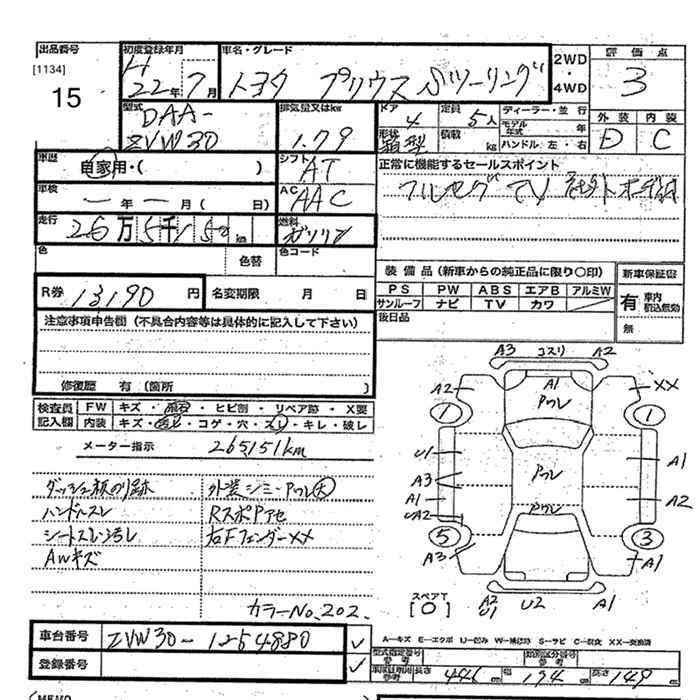 出品番号 初度登録年月 車名・グレード 2WD・4WD 評価点
[1134] 15 H22年7月 トヨタ プリウス Sツーリング 3
型式 DAA-ZVW30 排気量又はkw 1.79 ドア 4 定員 5人 ディーラー・並行 外装 内装
形状 箱型 積載 kg モデル年式 年 ハンドル 左・右 D C
車歴 自家用・( ) シフト AT 正常に機能するセールスポイント
車検 ー年ー月( 日) AC AAC フルセグTV 社外
走行 26万5千15 km 燃料 ガソリン
色 色替 色コード
装備品(新車からの純正品に限り○印) 新車保証書
R券 13190円 名変期限 月 日 PS PW ABS エアB アルミW 有 車内積込無効
サンルーフ ナビ TV カワ
後日品 無
注意事項申告欄(不具合内容等は具体的に記入して下さい)
修復歴 有(箇所 )
検査員記入欄 FW キズ・飛石・ヒビ割・リペア跡・X要
内装 キズ・汚レ・コゲ・穴・スレ・キレ・破レ
メーター指示 265151km
ダッシュ板のり跡 外装シミ・アウレ大
ハンドルスレ RスポPアセ
シートスレ汚レ 右FフェンダーXX
AWキズ
カラーNo.202
A3 コスリ A2
A2 A1 XX
アウレ
1 1
U1 A1
アウレ
A3
A1 A2
UA2 アウレ
5 3
A3 A1
スペアT [0] A2 U1 U2 A1
車台番号 ZVW30-1254880
A-キズ E-エクボ U-凹み W-補修跡 S-サビ C-腐食 XX-交換済
登録番号 型式指定番号 参考 類別区分番号 参考
車検証記載 参考 長さ 446 幅 174 高さ 149
(MEMO